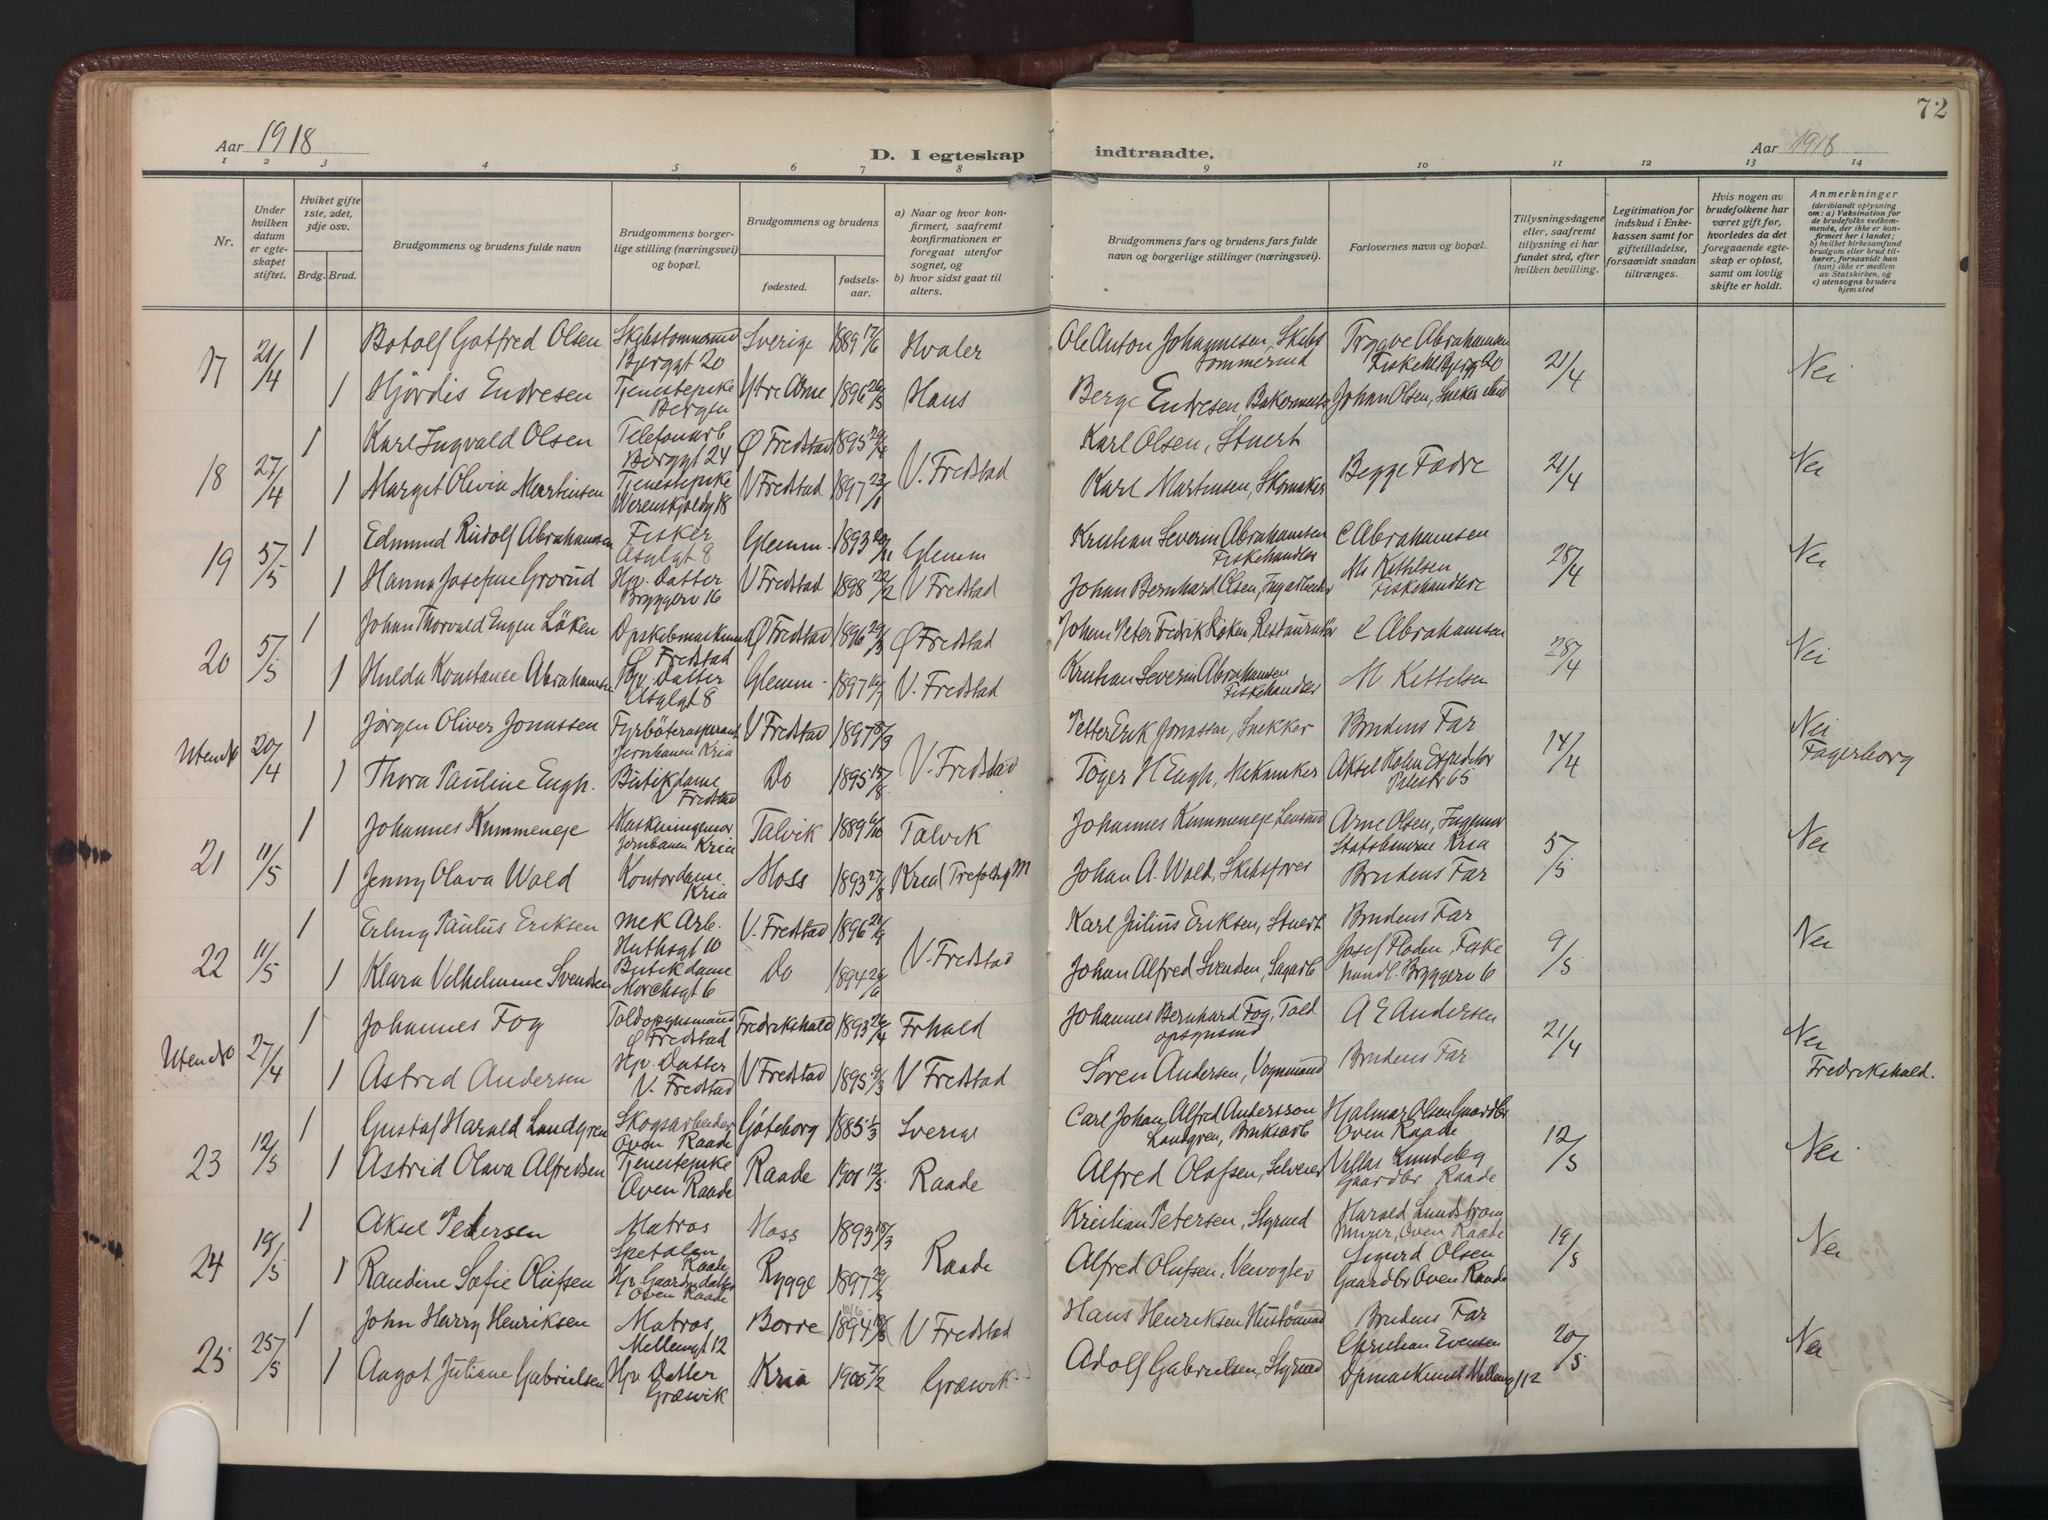 72
Aar 1918
D. I egteskap
indtraadte.
Aar 1918
1 2 3 4 5 6 7 8 9 10 11 12 13 14
Nr.
Under hvilken datum er egteskapet stiftet.
Hviket gifte 1ste, 2det, 3dje osv.
Brdg. Brud.
Brudgommens og brudens fulde navn
Brudgommens borgerlige stilling (næringsvei) og bopæl.
Brudgommens og brudens
fødested.
fødselsaar.
a) Naar og hvor konfirmert, saafremt konfirmationen er foregaat utenfor sognet, og
b) hvor sidst gaat til alters.
Brudgommens fars og brudens fars fulde navn og borgerlige stillinger (næringsvei).
Forlovernes navn og bopæl.
Tillysningsdagene eller, saafremt tillysning ei har fundet sted, efter hvilken bevilling.
Legitimation for indskud i Enkekassen samt for giftetilladelse, forsaavidt saadan tiltrænges.
Hvis nogen av brudefolkene har været gift før, hvorledes da det foregaaende egteskap er opløst, samt om lovlig skifte er holdt.
Anmerkninger (deriblandt oplysning om: a) Vaksination for de brudefolks vedkommende, der ikke er konfirmert her i landet; b) hvilket kirkesamfund brudgom eller brud tilhører, forsaavidt han (hun) ikke er medlem av Statskirken, og c) utensogns bruders hjemsted
17 21/4 1 Botolf Gotfred Olsen Skibstømmermd Berggt 20 Sverige 1889 17/6 Hvaler Ole Anton Johannesen, Skibstømmermd Trygve Abrahamsen 21/4 Nei
1 Hjördis Endresen Tjenestepike Ytre Arne 1896 Haus Berge Endresen, Bakermester Johan Olsen, Snekker
18 27/4 1 Karl Ingvald Olsen Telefonarb Berggt 24 Ø Fredstad 1895 V. Fredstad Karl Olsen, Stuert Begge Fædre 21/4 Nei
1 Margit Olivia Martinsen Tjenestepike Werenskjoldgt 18 V Fredstad 1897 23/1 Karl Martinsen, Skomaker
19 5/5 1 Edmund Rudolf Abrahamsen Fisker Asylgt 8 Glemm 1893 Glemm Kristian Severin Abrahamsen Fiskehandler C Abrahamsen 28/4 Nei
1 Hanna Josefine Grorud Hjv. Datter Bryggeriv 16 V Fredstad 1898 22/2 V Fredstad Johan Bernhard Olsen, M Kittelsen Fiskehandlere
20 5/5 1 Johan Thorvald Eugen Löken Opskibsmaskinist Ø Fredstad Ø Fredstad 1896 29/3 Ø Fredstad Johan Peter Fredrik Löken Restauratör C Abrahamsen 28/4 Nei
1 Hulda Konstance Abrahamsen Hjv. Datter Asylgt 8 Glemm 1897 V. Fredstad Kristian Severin Abrahamsen Fiskehandler M Kittelsen
Utensb 20/4 1 Jørgen Oliver Jonassen Fyrböteraspirant Jernbanen Kria V Fredstad 1897 V. Fredstad Petter Erik Jonassen, Snekker Brudens Far 14/4 Nei Fagerborg
1 Thora Pauline Engh. Butikdame V Fredstad Do 1895 15/8 Töger H Engh, Mekaniker Aksel Holm Expeditör
21 11/5 1 Johannes Kummeneje Jernbanen Kria Talvik 1889 Talvik Johannes Kummeneje Lensmd Arne Olsen, Statsbanerne Kria 5/5 Nei
1 Jenny Olava Wold Kontordame Kria Moss 1893 27/8 Kria (Trefoldigh M Johan A. Wold, Skibsfører Brudens Far
22 11/5 1 Erling Paulus Eriksen mek Arb. Huthsgt 10 V. Fredstad 1896 V. Fredstad Karl Julius Eriksen, Stuert Brudens Far 9/5 Nei
1 Klara Vilhelmine Svendsen Butikdame Morchsgt 6 Do 1894 Johan Alfred Svendsen, Sagarb Josef Floden, Fiskehandl. Bryggeriv 6
Utensb 27/4 1 Johannes Fog Toldopsynsmand Ø Fredstad Fredrikshald 1893 26/4 Frhald Johannes Bernhard Fog, Told opsynsmd A E Andersen 21/4 Nei Fredrikshald.
1 Astrid Andersen Hjv. Datter V. Fredstad V Fredstad 1895 V Fredstad Sören Andersen, Vognmand Brudens Far
23 12/5 1 Gustaf Harald Landgren Skogsarbeider Oven Raade Göteborg 1885 1/3 Sverige Carl Johan Alfred Andersson Landgren, Bruksarb Hjalmar Olsen Gaardbr Oven Raade 12/5 Nei
1 Astrid Olava Alfredsen Tjenestepike Oven Raade Raade 1901 12/5 Raade Alfred Olafsen, Selveier Gaardbr Raade
24 19/5 1 Aksel Pedersen Matros Spetalen Raade Moss 1893 Raade Kristian Petersen, Styrmd Harald Lundström Murer, Oven Raade 19/5 Nei
1 Randine Sofie Olufsen Hjv Gaardmdatter Oven Raade Rygge 1897 Alfred Olufsen, Veivogter Sigurd Olsen Gaardbr Oven Raade
25 25/5 1 John Harry Henriksen Matros, Mellemgt 12 Borre 1894 V Fredstad Hans Henriksen Hustömmd Brudens Far 20/5 Nei
1 Aagot Juliane Gabrielsen Hjv Datter Græsvik Kria 1900 7/2 Græsvik Adolf Gabrielsen, Styrmd Christian Evensen Opmaskinist Mellemgt 12